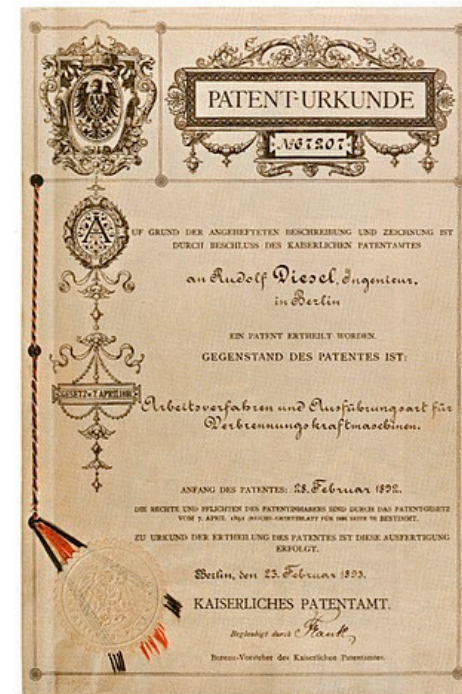 PATENT-URKUNDE
No 67207
AUF GRUND DER ANGEHEFTETEN BESCHREIBUNG UND ZEICHNUNG IST
DURCH BESCHLUSS DES KAISERLICHEN PATENTAMTES
an Rudolf Diesel, Ingenieur,
in Berlin
EIN PATENT ERTHEILT WORDEN.
GEGENSTAND DES PATENTES IST:
GESETZ v. 7. APRIL 1891
Arbeitsverfahren und Ausführungsart für
Verbrennungskraftmaschinen.
ANFANG DES PATENTES: 28. Februar 1892.
DIE RECHTE UND PFLICHTEN DES PATENTINHABERS SIND DURCH DAS PATENTGESETZ
VOM 7. APRIL 1891 (REICHS-GESETZBLATT FÜR 1891 SEITE 79) BESTIMMT.
ZU URKUND DER ERTHEILUNG DES PATENTES IST DIESE AUSFERTIGUNG
ERFOLGT.
Berlin, den 23. Februar 1893.
KAISERLICHES PATENTAMT.
Beglaubigt durch
Bureau-Vorsteher des Kaiserlichen Patentamtes.